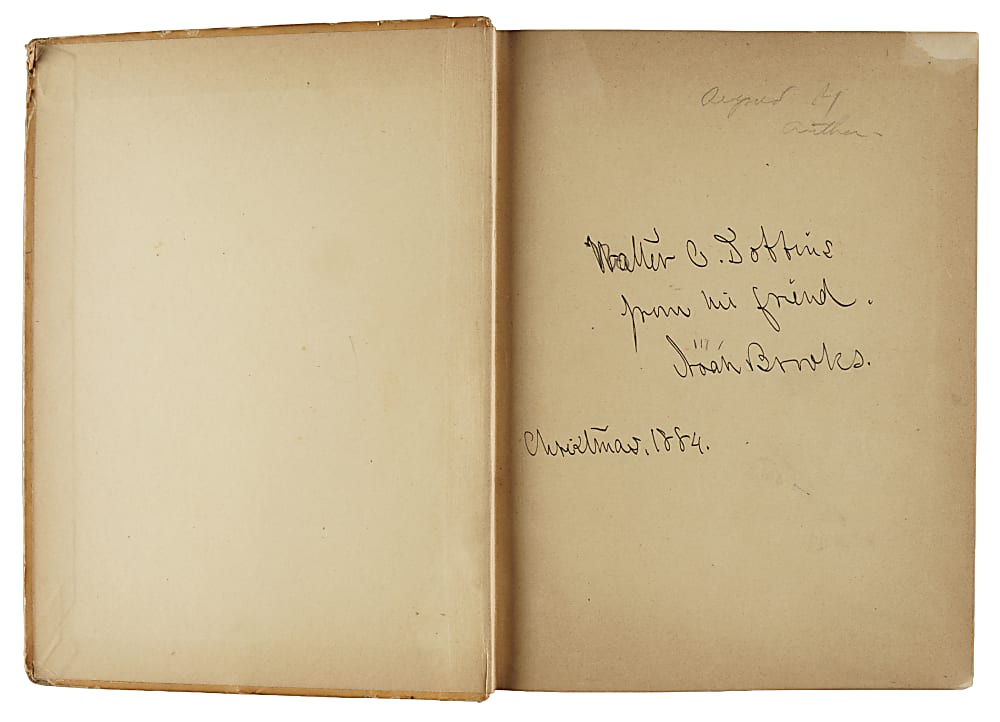 Signed by
Author
Walter C. Dobbins
from his friend.
Noah Brooks.
Christmas, 1884.